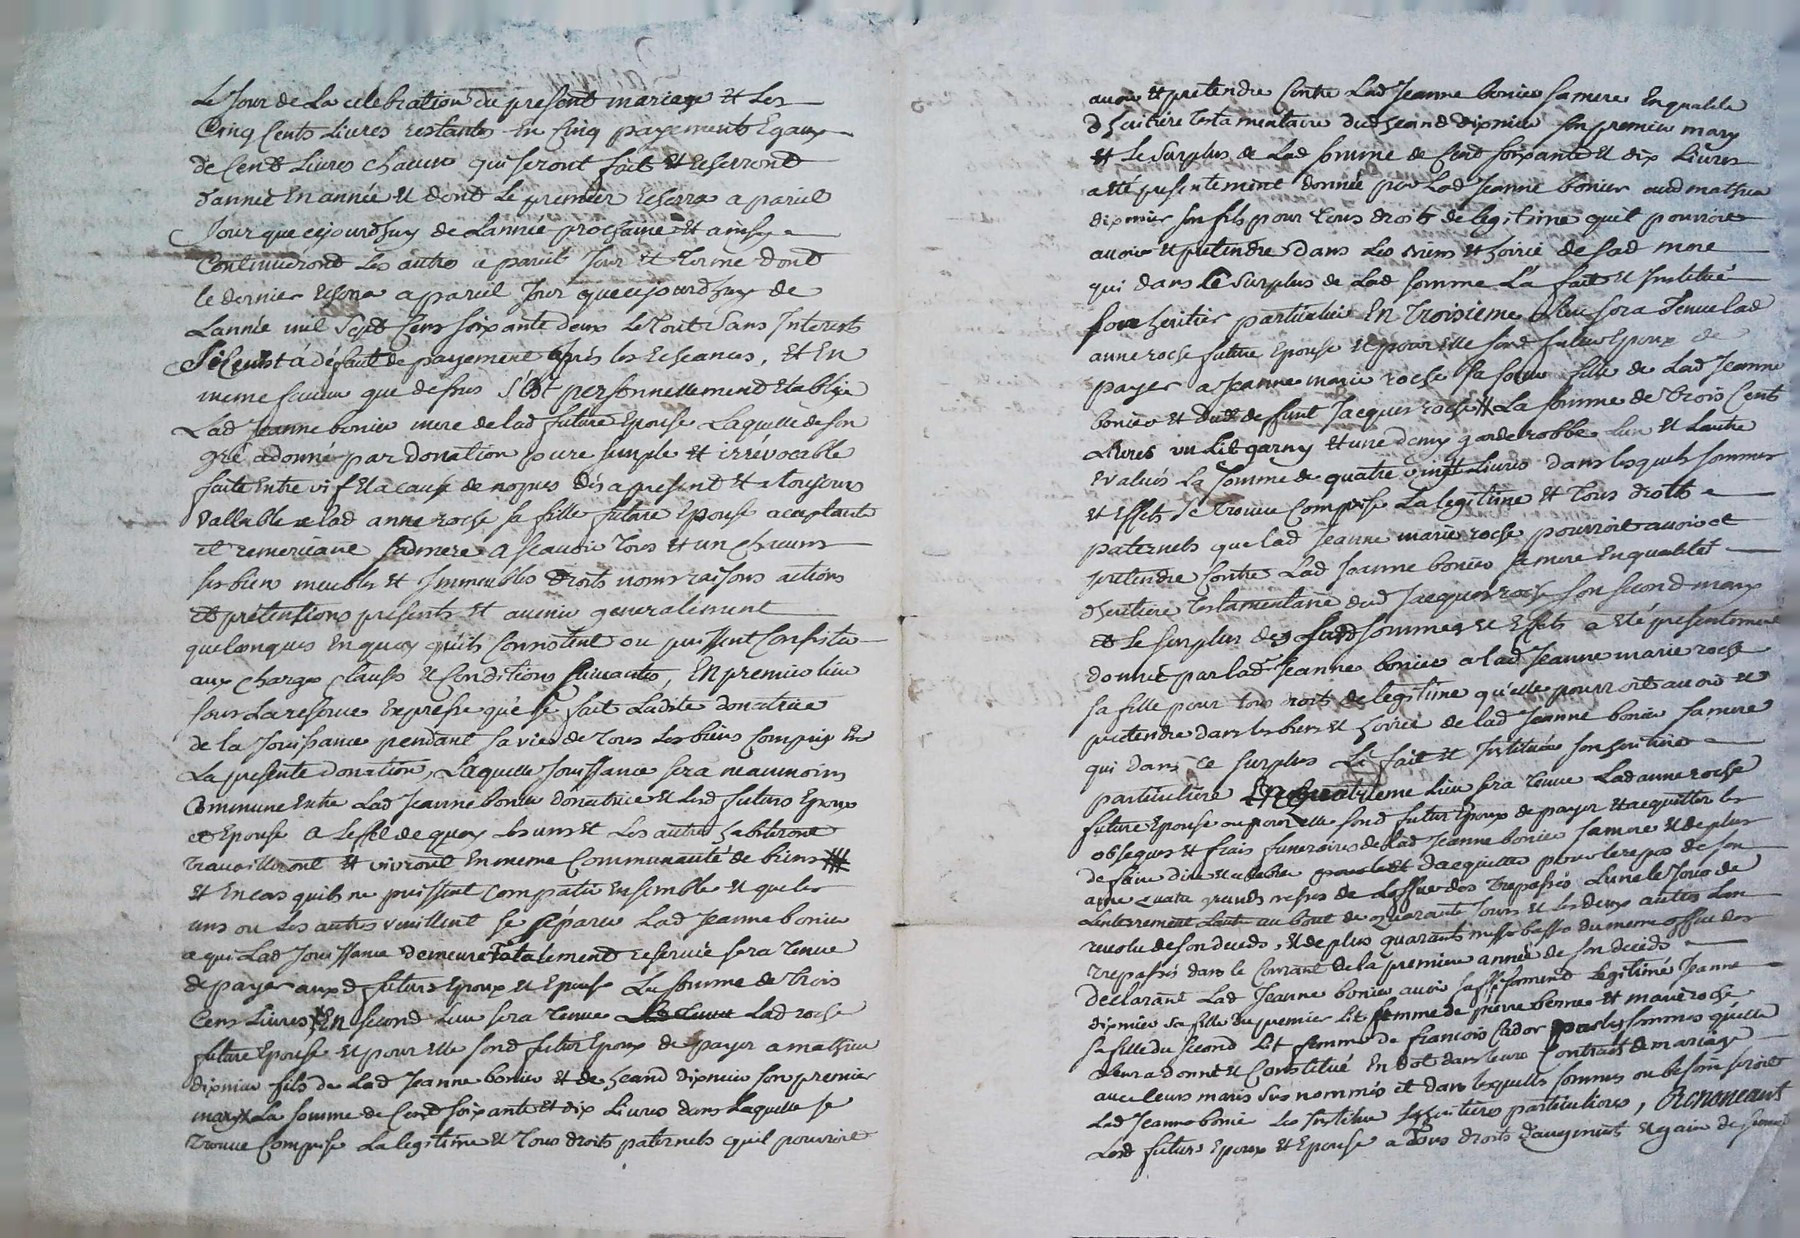 Le Jour de La celebration du present mariage et Les
Cinq Cents Livres restantes En Cinq payements Egaux
de Cent Livres chacun qui seront fait et Escerront
d'année En année et dont Le premier Escerra a pareil
Jour que cejourdhuy de Lannée prochaine et ainsy
Continueront Les autres a pareil Jour et terme dont
le dernier Escerra a pareil Jour que cejourdhuy de
Lannée mil Sept Cens soixante deux Le tout Sans Interest
Si Ce n'est a deffaut de payement aprés les Escances, Et En
meme faveur que dessus s'Est personnellement Etablie
Lad Jeanne bonier mere de lad future Epouse Laquelle de son
gré a donné par donation pure simple et irrévocable
faite Entre vif et a cause de nopces dès a present et a toujours
Vallable a lad anne roche sa fille future Epouse acceptante
et remerciant sad mere a scavoir tous et un chacuns
ses bien meubles et Immeubles droits noms raisons actions
et prétentions presents et avenir generalement
quelconques En quoy qu'ils Consistent ou puissent Consister
aux charges clauses et Conditions suivantes, En premier lieu
sous La reserve Expresse que se fait Ladite donatrice
de la Jouissance pendant sa vie de tous Les biens Compris En
La presente donation, Laquelle Jouissance sera neanmoins
Commune Entre Lad Jeanne bonier donatrice et Lesd futurs Epoux
et Epouse a L'effet de quoy Les uns et Les autres habiteront
travailleront et vivront En meme Communauté de biens
et En cas quils ne puissent compatir Ensemble et que les
uns ou Les autres veuillent se séparer Lad Jeanne bonier
a qui Lad Jouissance demeure totalement reservée sera tenue
de payer auxd futurs Epoux et Epouse La somme de trois
Cens Livres, En second Lieu sera tenue Lad roche
future Epouse et pour Elle sond futur Epoux de payer a mathieu
dixmier fils de Lad Jeanne bonier et de heand dixmier son premier
mary La somme de Cent soixante et dix Livres dans Laquelle se
trouve Comprise La legitime et tous droits paternels qu'il pourroit
avoir et pretendre Contre Lad Jeanne bonier sa mere En qualité
d'heritiere testamentaire dud heand dixmier son premier mary
et Le Surplus de Lad somme de Cent soixante et dix Livres
a eté presentement donnée par Lad Jeanne bonier aud mathieu
dixmier son fils pour tous droits de legitime qu'il pourroit
avoir et pretendre dans Les biens et hoirie de sad mere
qui dans Le Surplus de Lad somme L'a fait et Institué
son heritier particulier En troisieme Lieu sera tenue lad
anne roche future Epouse et pour Elle sond futur Epoux de
payer a Jeanne marie roche sa soeur fille de Lad Jeanne
bonier et dud deffunt Jacques roche La somme de trois Cents
Livres un Lit garny et une demy garderobbe Lun et Lautre
Evalués La somme de quatre vingt Livres dans lesquels sommes
et Effets se trouve Comprise La legitime et tous droits
paternels que lad Jeanne marie roche pourroit avoir et
pretendre Contre Lad Jeanne bonier sa mere En qualité
d'heritiere testamentaire dud Jacques roche son second mary
et Le surplus des sommes et Effets a eté presentement
donné par lad Jeanne bonier a lad Jeanne marie roche
sa fille pour tous droits de legitime qu'elle pourroit avoir et
pretendre dans les biens et hoirie de lad Jeanne bonier sa mere
qui dans ce surplus La fait et Instituée son heritiere
particuliere En quatrieme Lieu sera tenue Lad anne roche
future Epouse ou pour elle sond futur Epoux de payer et acquitter les
obseques et frais funeraires de lad Jeanne bonier sa mere et de plus
de faire dire et celebrer d'acquitter pour le repos de son
ame quatre grands messes de Loffice des trepassés Lune le Jour de
Lenterrement Lautre au bout de quarante Jours et les deux autres Lan
revolu de son deceds, et de plus quarante messes basses du meme office des
trepassés dans le Courant de la premiere année de son deceds
déclarant Lad Jeanne bonier avoir suffisamment légitimé Jeanne
dixmier sa fille du premier Lit femme de pierre berne et marie roche
sa fille du second Lit femme de francois Cador par les sommes qu'elle
Leur a donné et Constitué En dot dans leurs Contrats de mariage
avec leurs maris susnommés et dans lesquelles sommes ou besoin seroit
Lad Jeanne bonier Les Institue ses heritieres particulieres, Renonceant
Lesd futurs Epoux et Epouse a tous droits d'augment et gain de survie